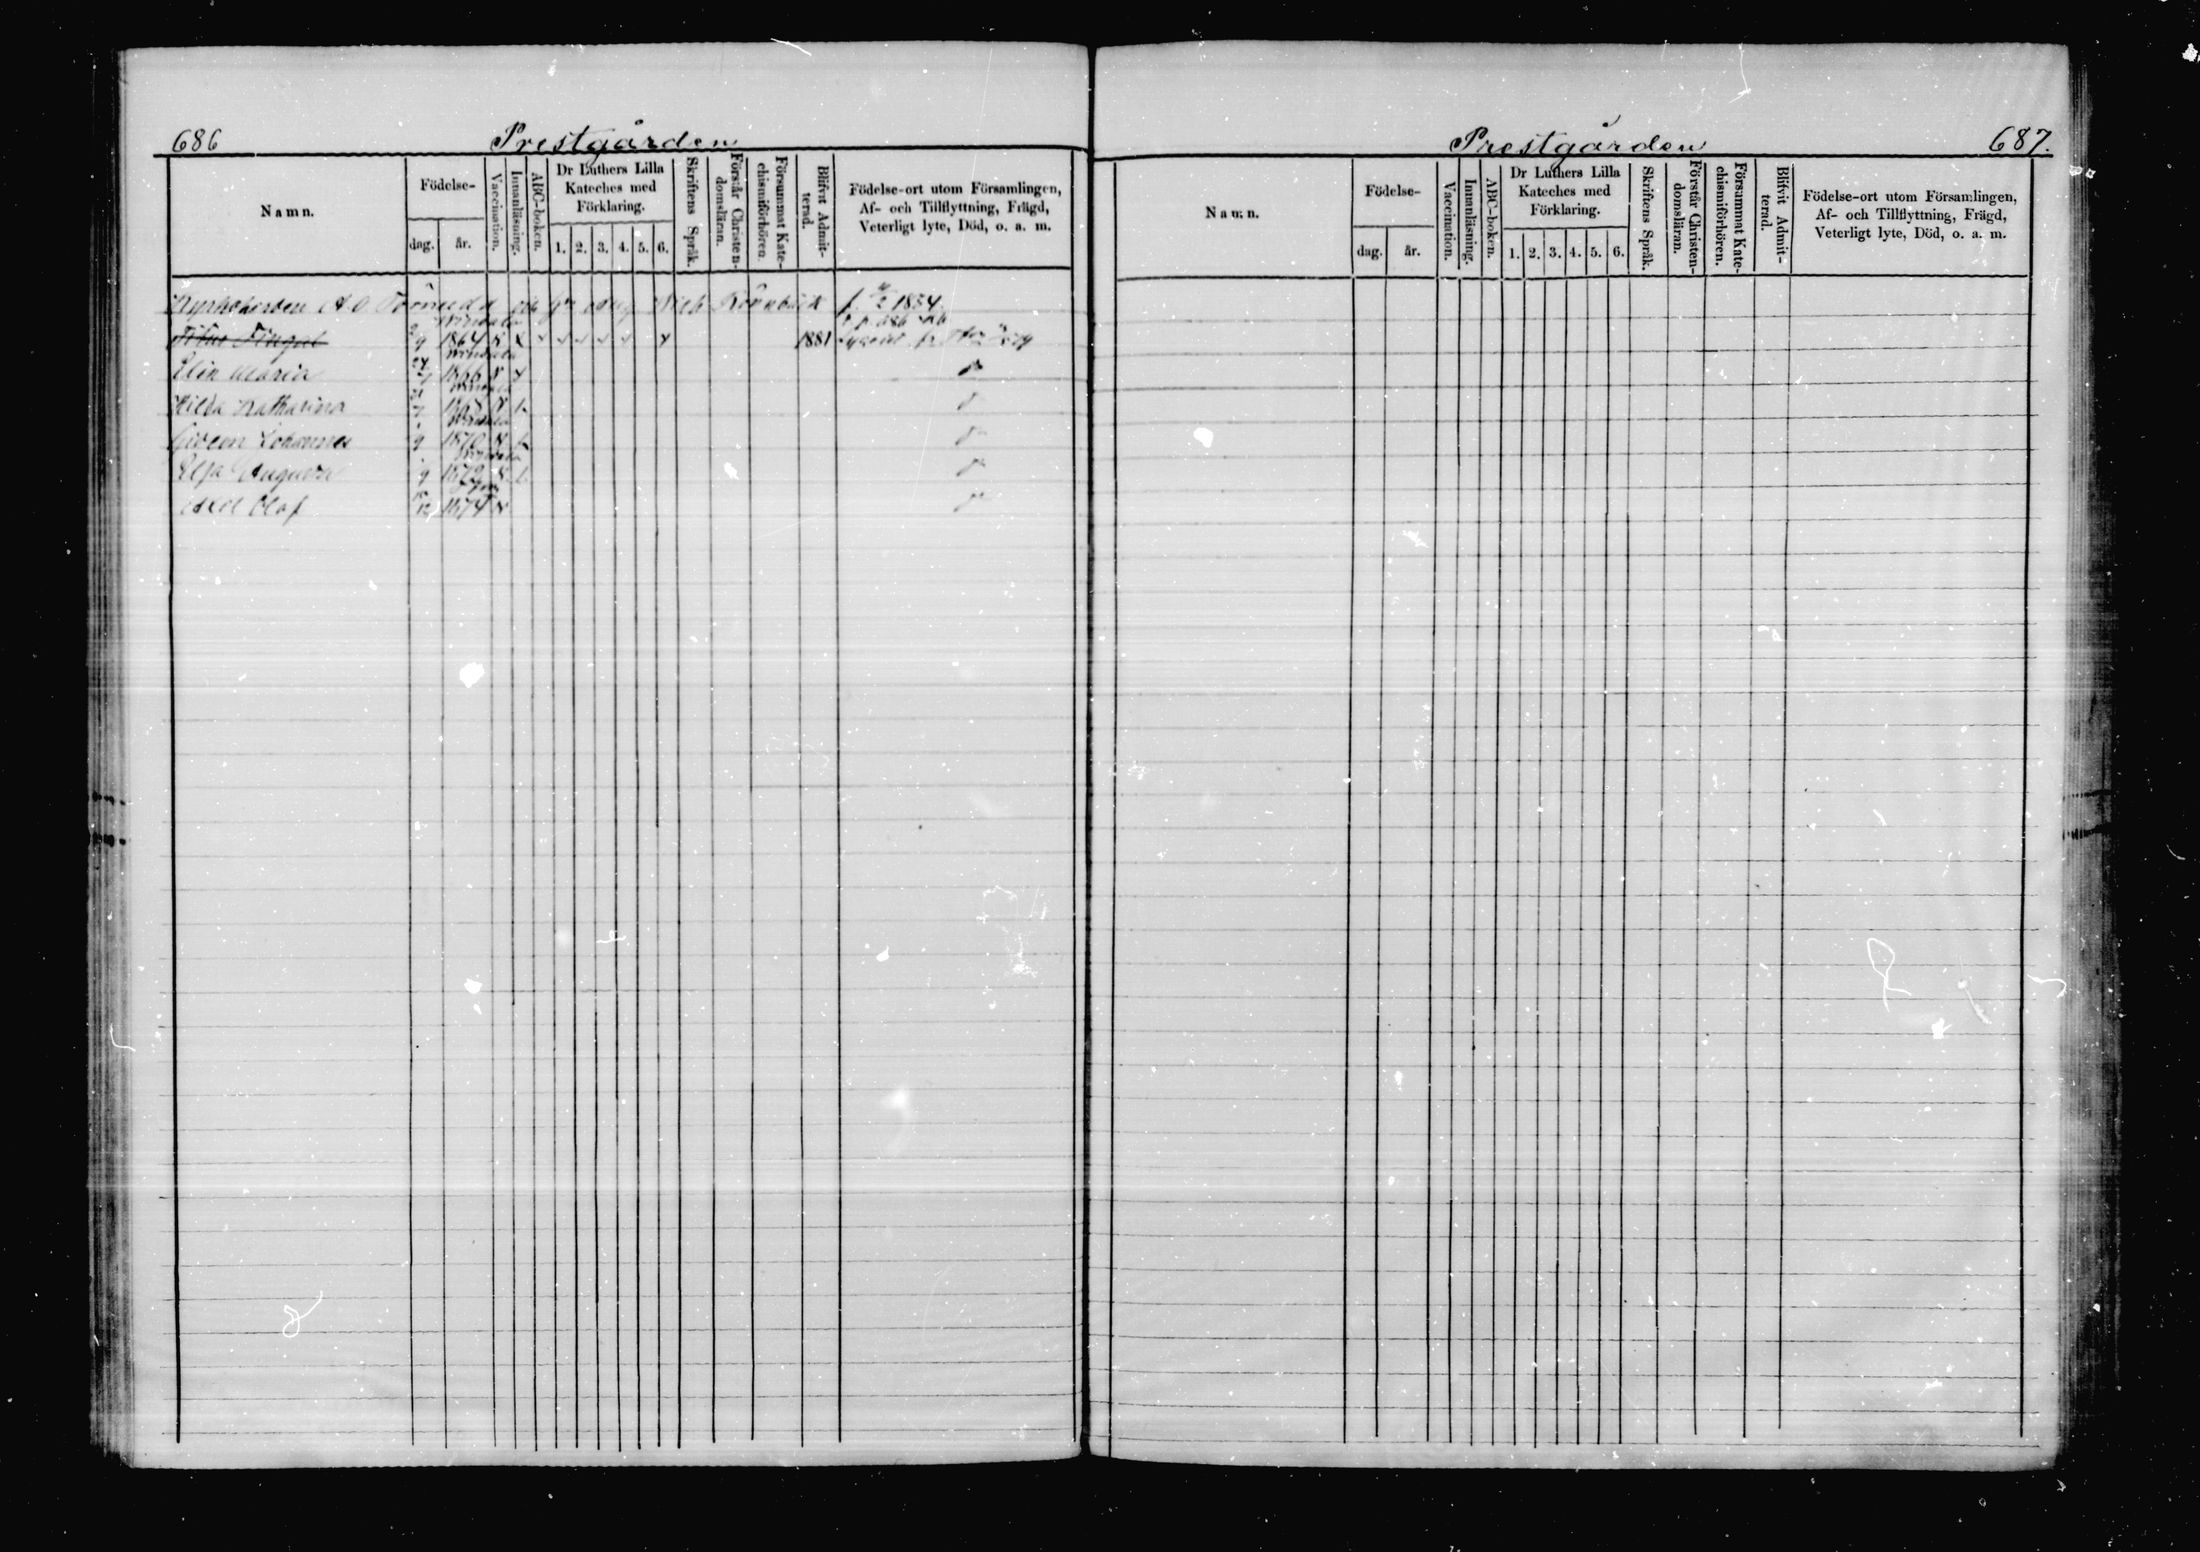 686 Prestgården
Namn.
Födelse-
dag. år.
Vaccination.
Innanläsning.
ABC-boken.
Dr Luthers Lilla
Kateches med
Förklaring.
1. 2. 3. 4. 5. 6.
Skriftens Språk.
Förstår Christen-
domsläran.
Försummat Kate-
chismiförhören.
Blifvit Admit-
terad.
Födelse-ort utom Församlingen,
Af- och Tillflyttning, Frägd,
Veterligt lyte, Död, o. a. m.
Kyrkoherden A. O. Törnudd 1834
1864 1881
Elin Maria 1866
Hilda Katharina
Gideon Johannes 1870
Elsa 1872
Axel Olaf 1874
Prestgården 687.
Namn.
Födelse-
dag. år.
Vaccination.
Innanläsning.
ABC-boken.
Dr Luthers Lilla
Kateches med
Förklaring.
1. 2. 3. 4. 5. 6.
Skriftens Språk.
Förstår Christen-
domsläran.
Försummat Kate-
chismiförhören.
Blifvit Admit-
terad.
Födelse-ort utom Församlingen,
Af- och Tillflyttning, Frägd,
Veterligt lyte, Död, o. a. m.